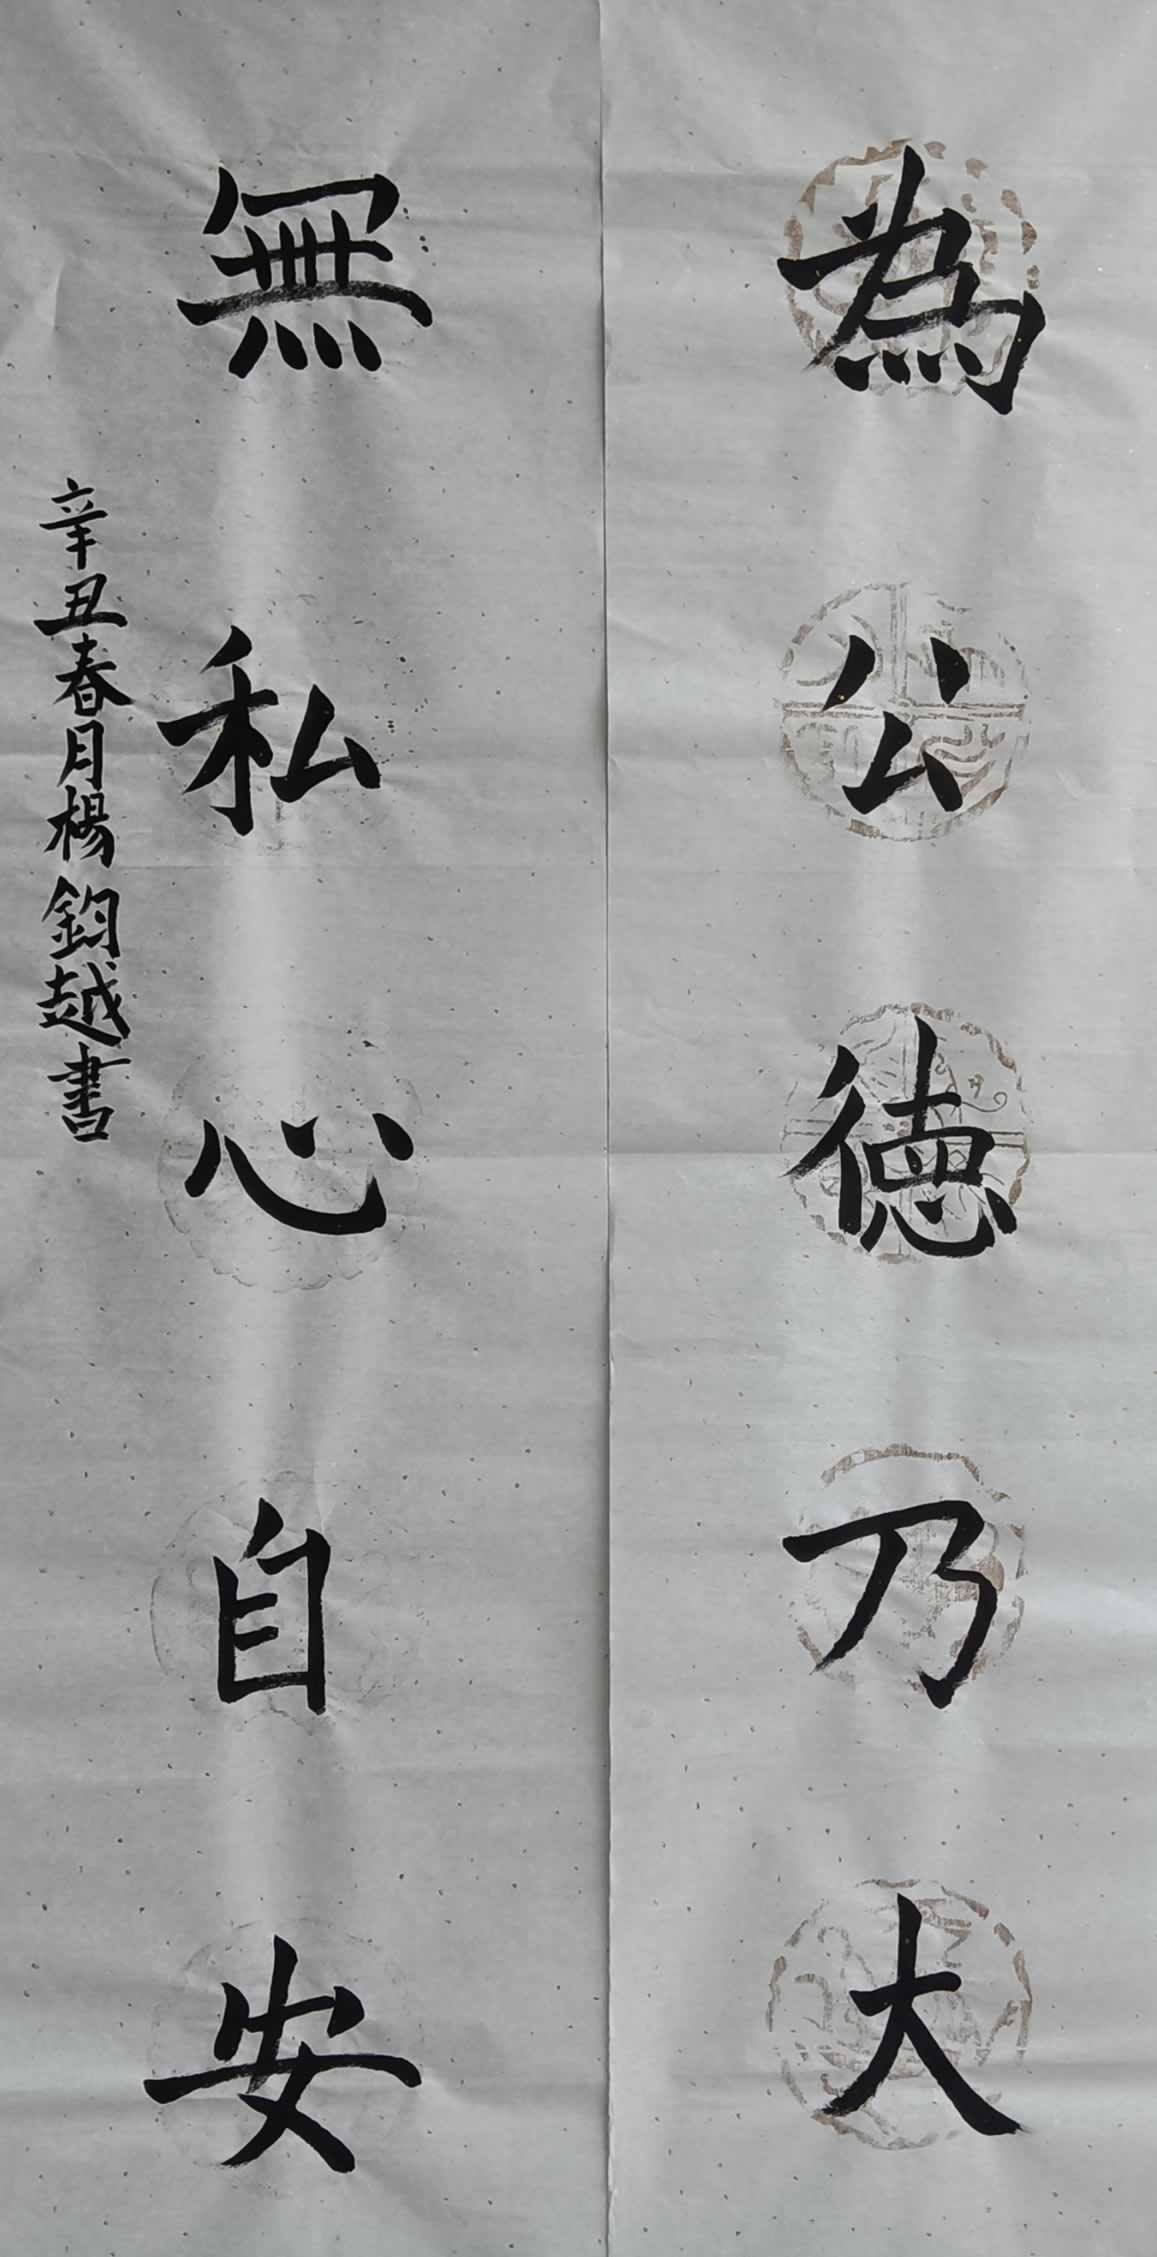 為公徳乃大
無私心自安
辛丑春月楊鈞越書